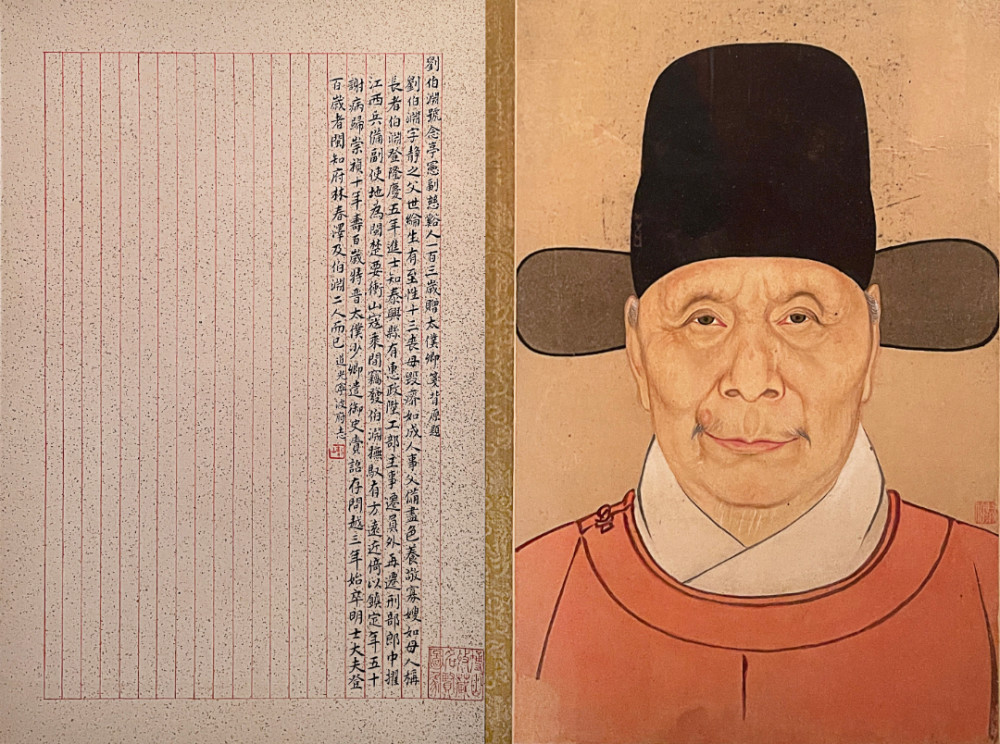 劉伯淵號念亭憲副慈谿人一百三歲贈太僕卿裱背原題
劉伯淵字靜之父世綸生有至性十三喪母毀瘠如成人事父備盡色養敬寡嫂如母人稱
長者伯淵登隆慶五年進士知泰興縣有惠政陞工部主事遷員外再遷刑部郎中擢
江西兵備副使地為閩楚要衝山寇乘間竊發伯淵撫馭有方遠近倚以鎮定年五十
謝病歸崇禎十年壽百歲特晉太僕少卿遣御史賫詔存問越三年始卒明士大夫登
百歲者閩知府林春澤及伯淵二人而已 道光寧波府志